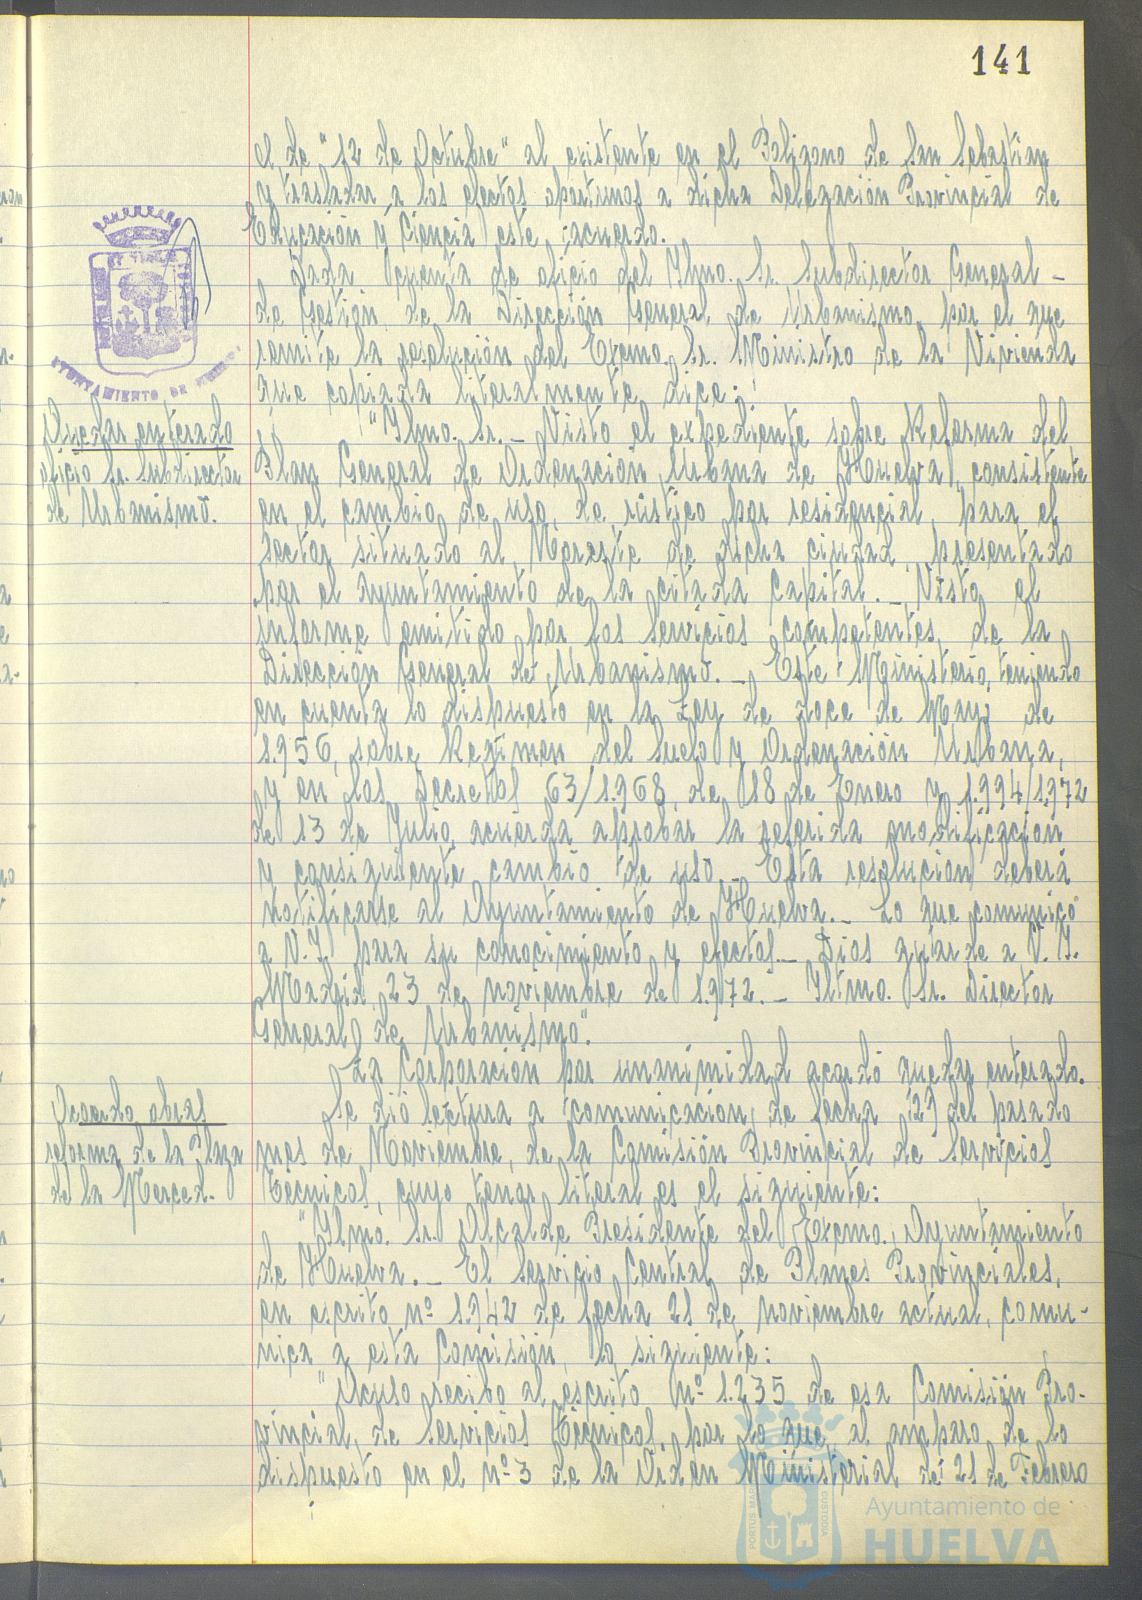 141
el de "12 de Octubre" al existente en el Polígono de San Sebastian
y trasladar a los efectos oportunos a dicha Delegación Provincial de
Educación y Ciencia este acuerdo.
Dada cuenta de oficio del Ylmo. Sr. Subdirector General -
de Gestión de la Dirección General de Urbanismo, por el que
remite la resolución del Excmo. Sr. Ministro de la Vivienda
que copiada literalmente dice:
AYUNTAMIENTO DE
Quedar enterado
oficio Sr. Subdirector
de Urbanismo.
"Ylmo. Sr. - Visto el expediente sobre Reforma del
Plan General de Ordenación Urbana de Huelva, consistente
en el cambio de uso, de rústico por residencial, para el
sector situado al Noreste de dicha ciudad, presentado
por el Ayuntamiento de la citada Capital. - Visto el
informe emitido por los Servicios competentes, de la
Dirección General de Urbanismo. - Este Ministerio, teniendo
en cuenta lo dispuesto en la Ley de doce de Mayo de
1.956, sobre Regimen del Suelo y Ordenación Urbana,
y en los Decretos 63/1.968, de 18 de Enero y 1.994/1.972
de 13 de Julio, acuerda aprobar la referida modificación
y consiguiente cambio de uso. - Esta resolución deberá
notificarse al Ayuntamiento de Huelva. - Lo que comunico
a V.I. para su conocimiento y efectos. - Dios guarde a V.I.
Madrid, 23 de noviembre de 1.972. - Iltmo. Sr. Director
General de Urbanismo".
La Corporación por unanimidad acordó quedar enterado.
Acuerdo obras
reforma de la Plaza
de la Merced.
Se dió lectura a comunicación, de fecha 29 del pasado
mes de Noviembre, de la Comisión Provincial de Servicios
Técnicos, cuyo tenor literal es el siguiente:
"Ylmo. Sr. Alcalde Presidente del Excmo. Ayuntamiento
de Huelva. - El Servicio Central de Planes Provinciales,
en escrito nº 1.942 de fecha 21 de noviembre actual, comu-
nica a esta Comisión, lo siguiente:
"Acuso recibo al escrito nº 1.235 de esa Comisión Pro-
vincial de Servicios Técnicos, por lo que, al amparo de lo
dispuesto en el nº 3 de la Orden Ministerial de 21 de Febrero
PORTUS MARIS
CUSTODIA
Ayuntamiento de
HUELVA